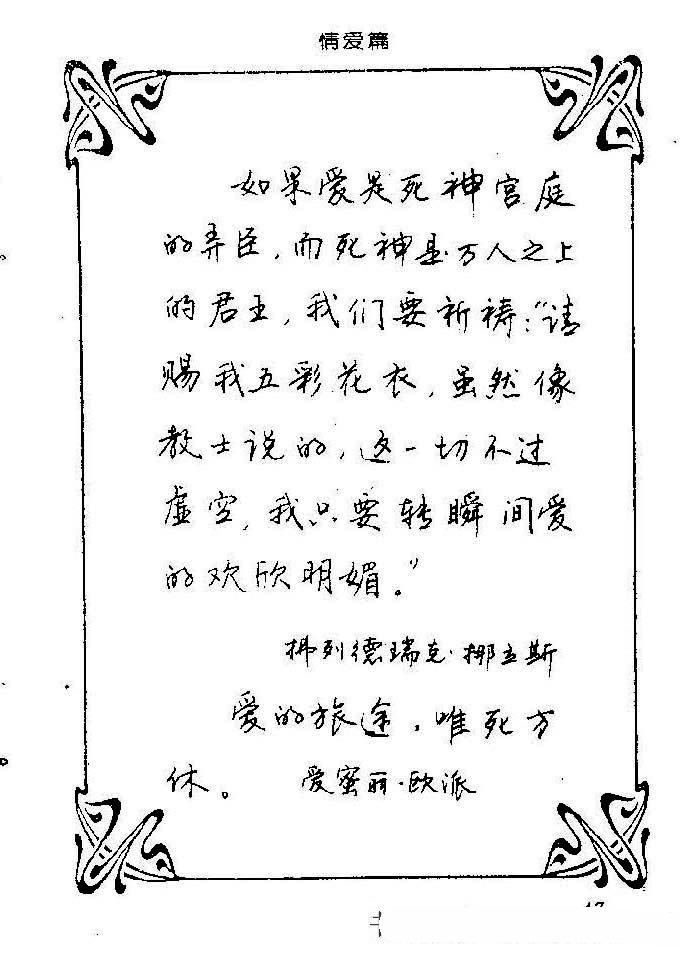 情爱篇
如果爱是死神宫庭
的弄臣，而死神是万人之上
的君王，我们要祈祷：“请
赐我五彩花衣，虽然像
教士说的，这一切不过
虚空，我只要转瞬间爱
的欢欣明媚。”
弗列德瑞克·挪立斯
爱的旅途，唯死方
休。 爱蜜丽·欧派